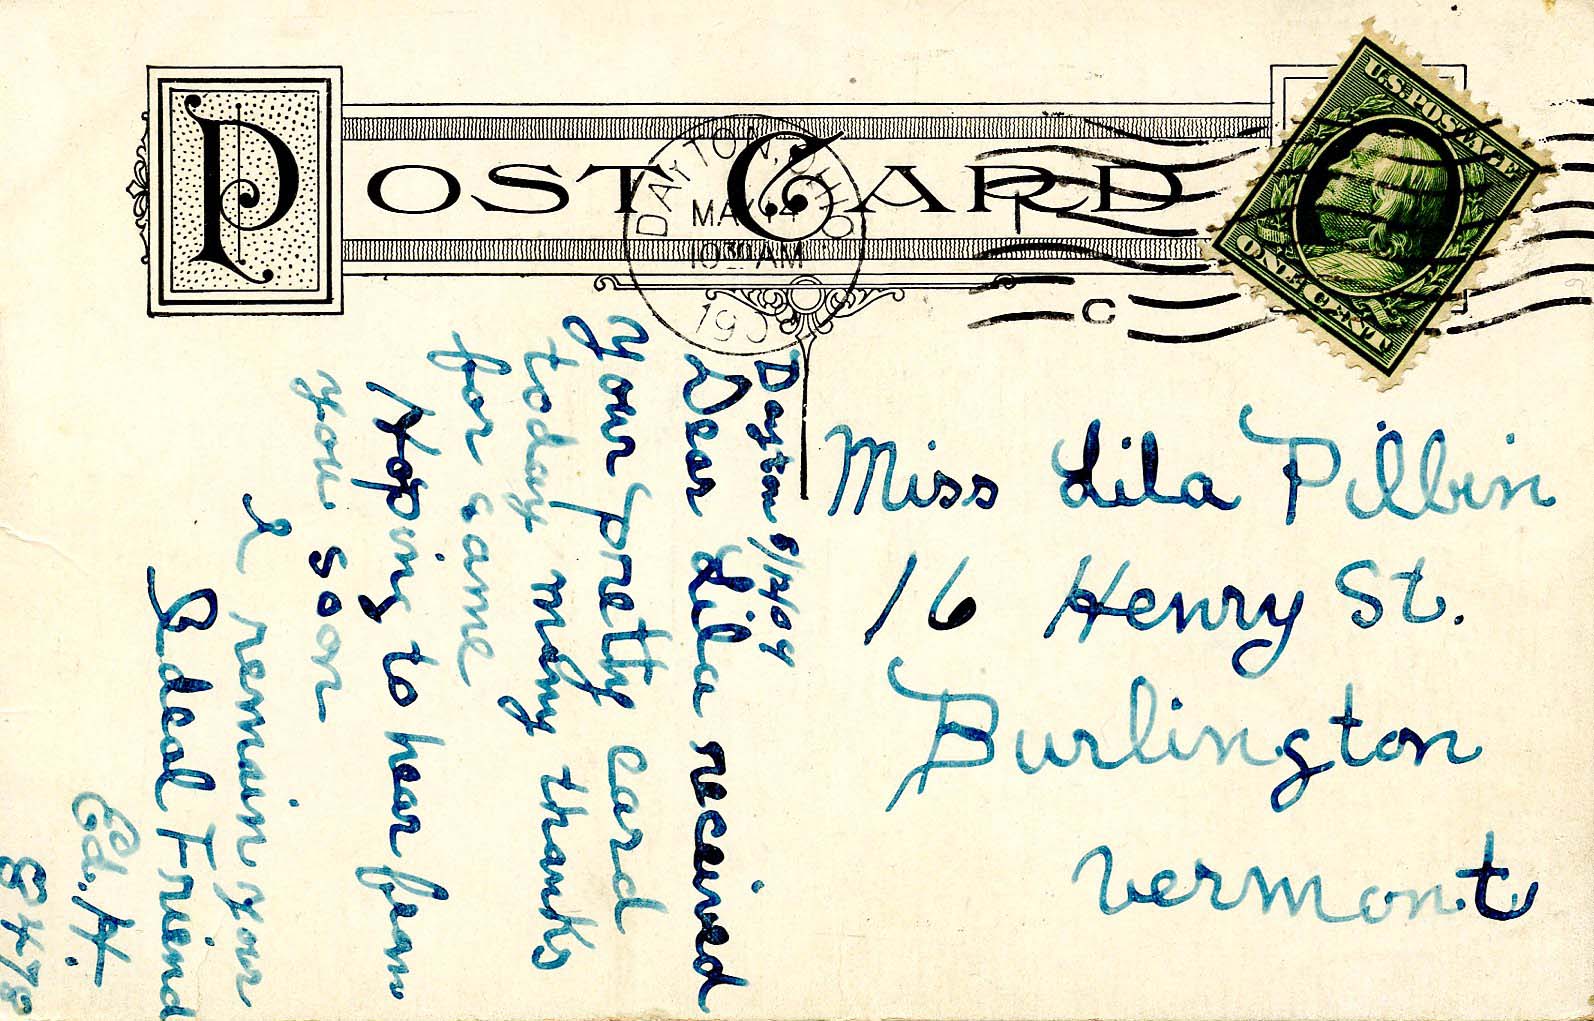 POST CARD
DAYTON, OHIO
MAY 14
1030 AM
190
C
U.S. POSTAGE
ONE CENT
Dayton 5/12/09
Dear Lila received
Your pretty card
today many thanks
for same
Hoping to hear from
you soon
I remain your
Ideal Friend
Ed. H.
Miss Lila Pilbin
16 Henry St.
Burlington
Vermont